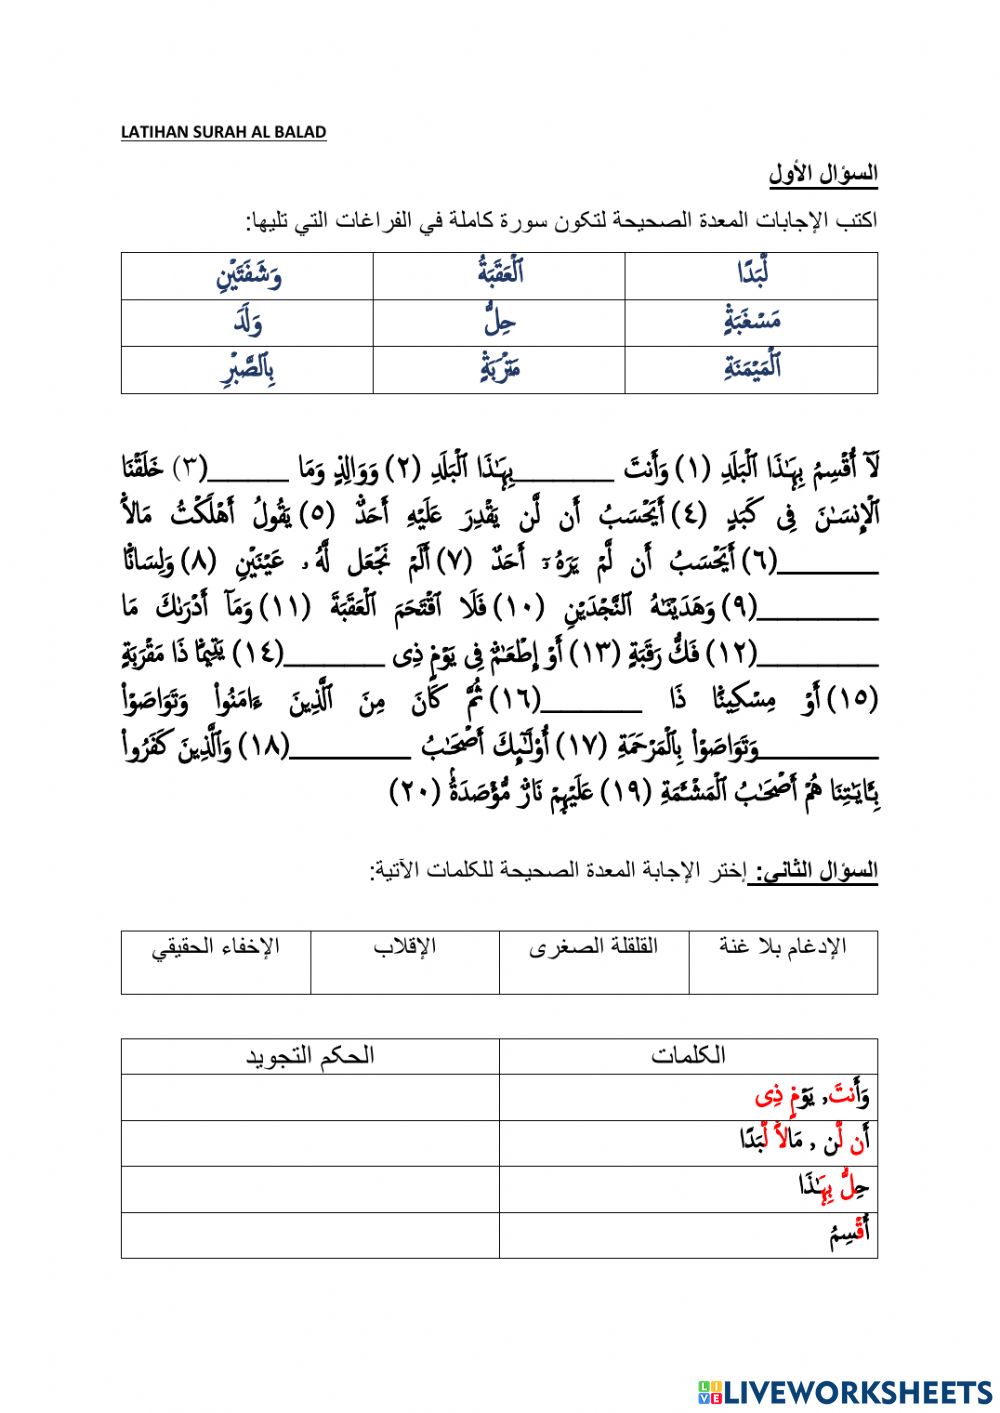 LATIHAN SURAH AL BALAD
السؤال الأول
اكتب الإجابات المعدة الصحيحة لتكون سورة كاملة في الفراغات التي تليها:
لُّبَدًا ٱلْعَقَبَةُ وَشَفَتَيْنِ
مَسْغَبَةٍ حِلٌّ وَلَدَ
ٱلْمَيْمَنَةِ مَتْرَبَةٍ بِٱلصَّبْرِ
لَآ أُقْسِمُ بِهَـٰذَا ٱلْبَلَدِ (١) وَأَنتَ ________بِهَـٰذَا ٱلْبَلَدِ (٢) وَوَالِدٍ وَمَا ______(٣) خَلَقْنَا
ٱلْإِنسَـٰنَ فِى كَبَدٍ (٤) أَيَحْسَبُ أَن لَّن يَقْدِرَ عَلَيْهِ أَحَدٌ (٥) يَقُولُ أَهْلَكْتُ مَالاً
________(٦) أَيَحْسَبُ أَن لَّمْ يَرَهُۥٓ أَحَدٌ (٧) أَلَمْ نَجْعَل لَّهُۥ عَيْنَيْنِ (٨) وَلِسَانًا
_________(٩) وَهَدَيْنَـٰهُ ٱلنَّجْدَيْنِ (١٠) فَلَا ٱقْتَحَمَ ٱلْعَقَبَةَ (١١) وَمَآ أَدْرَىٰكَ مَا
_________(١٢) فَكُّ رَقَبَةٍ (١٣) أَوْ إِطْعَـٰمٌ فِى يَوْمٍ ذِى ________(١٤) يَتِيمًا ذَا مَقْرَبَةٍ
(١٥) أَوْ مِسْكِينًا ذَا ________(١٦) ثُمَّ كَانَ مِنَ ٱلَّذِينَ ءَامَنُوا۟ وَتَوَاصَوْا۟
_________وَتَوَاصَوْا۟ بِٱلْمَرْحَمَةِ (١٧) أُو۟لَـٰٓئِكَ أَصْحَـٰبُ _________(١٨) وَٱلَّذِينَ كَفَرُوا۟
بِـَٔايَـٰتِنَا هُمْ أَصْحَـٰبُ ٱلْمَشْـَٔمَةِ (١٩) عَلَيْهِمْ نَارٌ مُّؤْصَدَةٌۢ (٢٠)
السؤال الثاني: إختر الإجابة المعدة الصحيحة للكلمات الآتية:
الإدغام بلا غنة القلقلة الصغرى الإقلاب الإخفاء الحقيقي
الكلمات الحكم التجويد
وَأَنتَ, يَوْمٍ ذِى
أَن لَّن , مَالاً لُّبَدًا
حِلٌّ بِهَـٰذَا
أُقْسِمُ
LIVE LIVEWORKSHEETS